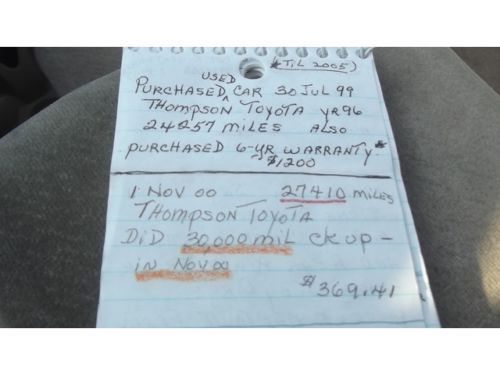 *TIL 2005)
USED
PURCHASED ^ CAR 30 JUL 99
THOMPSON TOYOTA YR96
24257 MILES ALSO
PURCHASED 6-YR WARRANTY*
$1200
1 NOV 00 27410 MILES
THOMPSON TOYOTA
DID 30,000 MIL CK UP -
IN NOV 00
$369.41